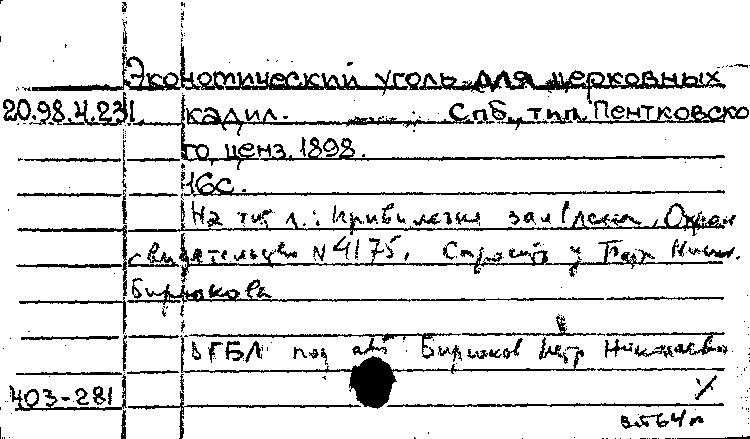 Экономический уголь для церковных
20.98.4.231. кадил. Спб., тип. Пентковско
го, ценз. 1898.
16с.
На тит. л.: Привилегия заявлена. Охран.
свидетельство N 4175. Спросить у Петр. Никол.
Бирюкова
В ГБЛ под авт. Бирюков Петр Николаевич
403-281